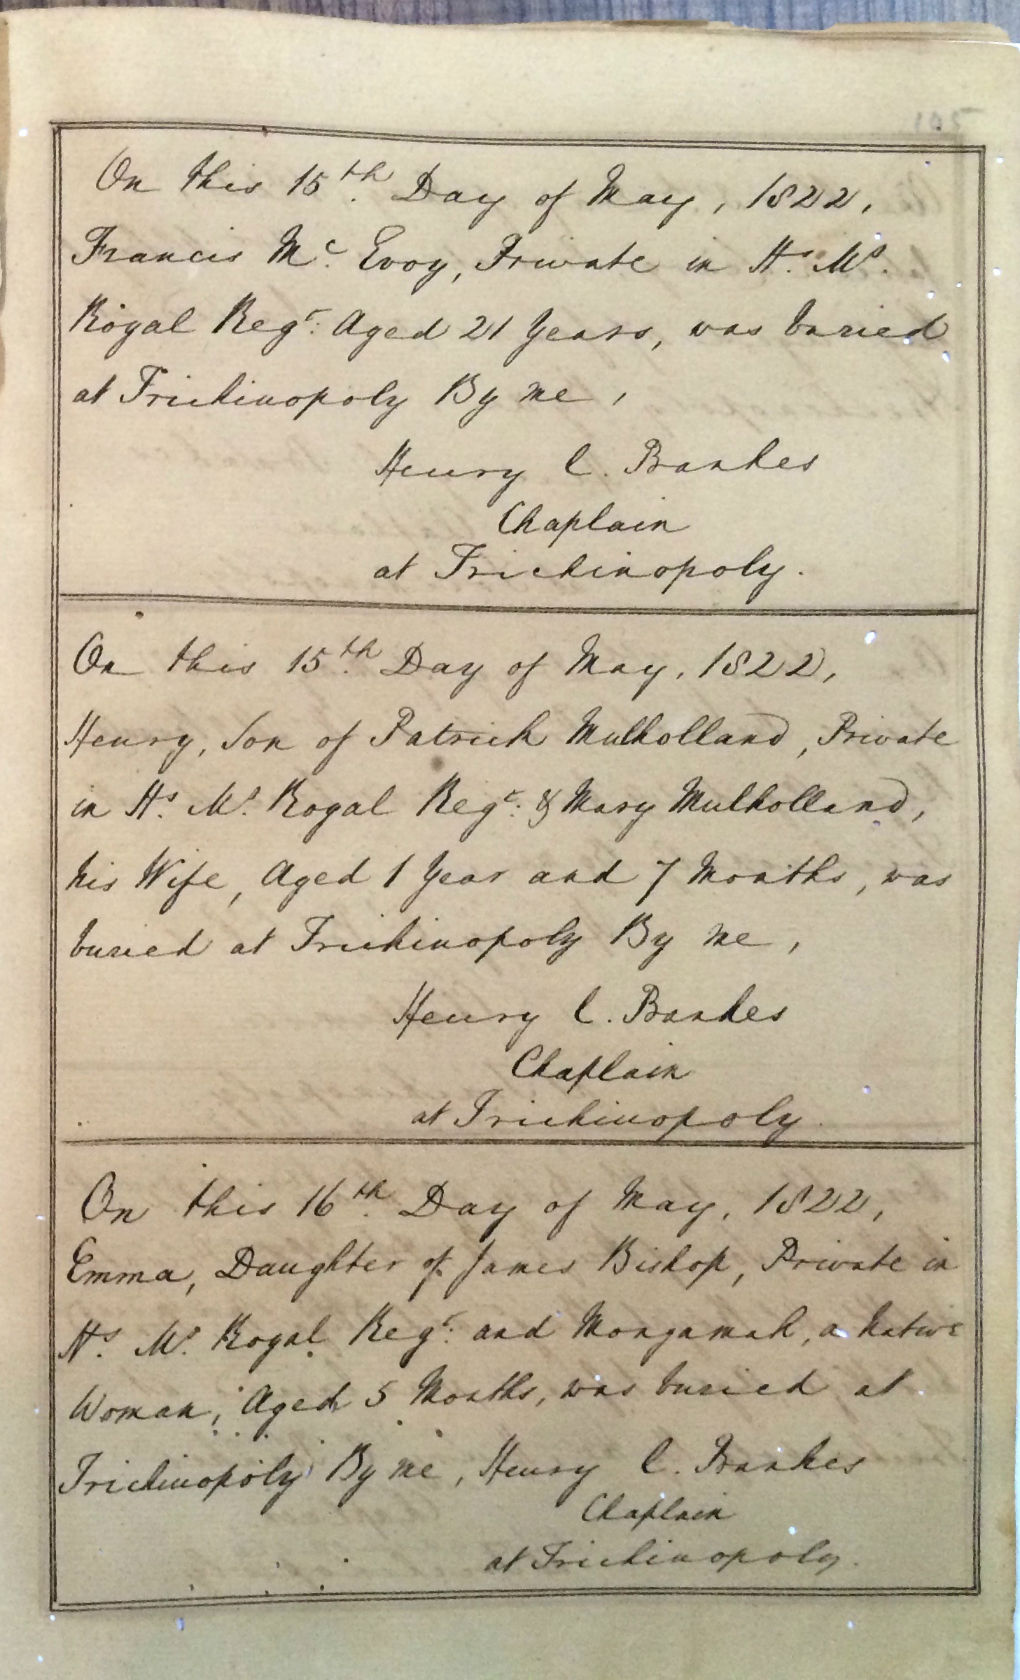 On this 15th Day of May, 1822,
Francis Mc. Evoy, Private in Hs. Ms.
Royal Regt: Aged 21 Years, was buried
at Trichinopoly By me,
Henry C. Bankes
Chaplain
at Trichinopoly.
On this 15th Day of May, 1822,
Henry, Son of Patrick Mulholland, Private
in Hs. Ms. Royal Regt: & Mary Mulholland,
his Wife, Aged 1 Year and 7 Months, was
buried at Trichinopoly By me,
Henry C. Bankes
Chaplain
at Trichinopoly.
On this 16th Day of May, 1822,
Emma, Daughter of James Bishop, Private in
Hs. Ms. Royal Regt: and Mongamah, a Native
Woman, Aged 5 Months, was buried at
Trichinopoly By me, Henry C. Bankes
Chaplain
at Trichinopoly.